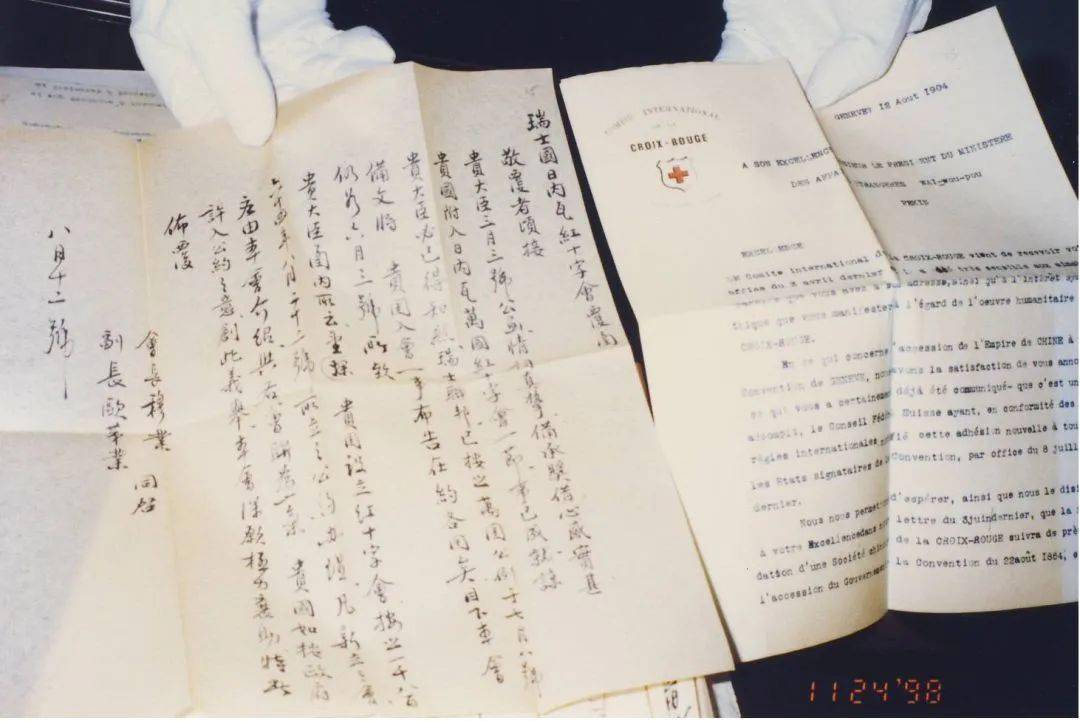 瑞士國日內瓦紅十字會覆函
敬覆者頃接
貴大臣三月三號公函情詞真摯備承獎借心感實甚
貴國附入日內瓦萬國紅十字會一節事已成就諒
貴大臣必已得知然瑞士聯邦已按照萬國公例于七月八號
備文將 貴國入會一事布告在約各國矣目下本會
仍如六月三號所致
貴大臣函內所云 貴國設立紅十字會按照一千八百
六十四年八月二十二號所立之公約辦理凡新立之會
應由本會介紹與各會聯為一氣 貴國如按政府
許入公約之意創此義舉本會深願極力襄助特此
佈覆
會長穆業 同啟
副長歐第業
八月十二號
COMITÉ INTERNATIONAL
DE LA
CROIX-ROUGE
GENEVE, 12 Aout 1904
A SON EXCELLENCE
LE PRESIDENT DU MINISTERE
DES AFFA
ETRANGERES WAI-WOU-POU
PEKIN
Le Comité international de
la CROIX-ROUGE vient de recevoir
office du 3 avril dernier
il a été très sensible aux
que vous avez
adresse, ainsi qu'à l'intérêt
thique que vous manifestez
à l'égard de l'oeuvre humanitaire
CROIX-ROUGE.
En ce qui concerne
l'accession de l'Empire de CHINE à
Convention de GENEVE, nous
avons la satisfaction de vous
ce qui vous a certainement
déjà été communiqué- que c'est un
accompli, le Conseil Fédé
Suisse ayant, en conformité des
règles internationales
cette adhésion nouvelle à
les Etats signataires de
Convention, par office du 8
dernier.
Nous nous permettons
d'espérer, ainsi que nous le
à votre Excellence dans
lettre du 3 juin dernier, que la
dation d'une Société
de la CROIX-ROUGE suivra de
l'accession du Gouvernement
la Convention du 22 août 1864,
11 24 '98